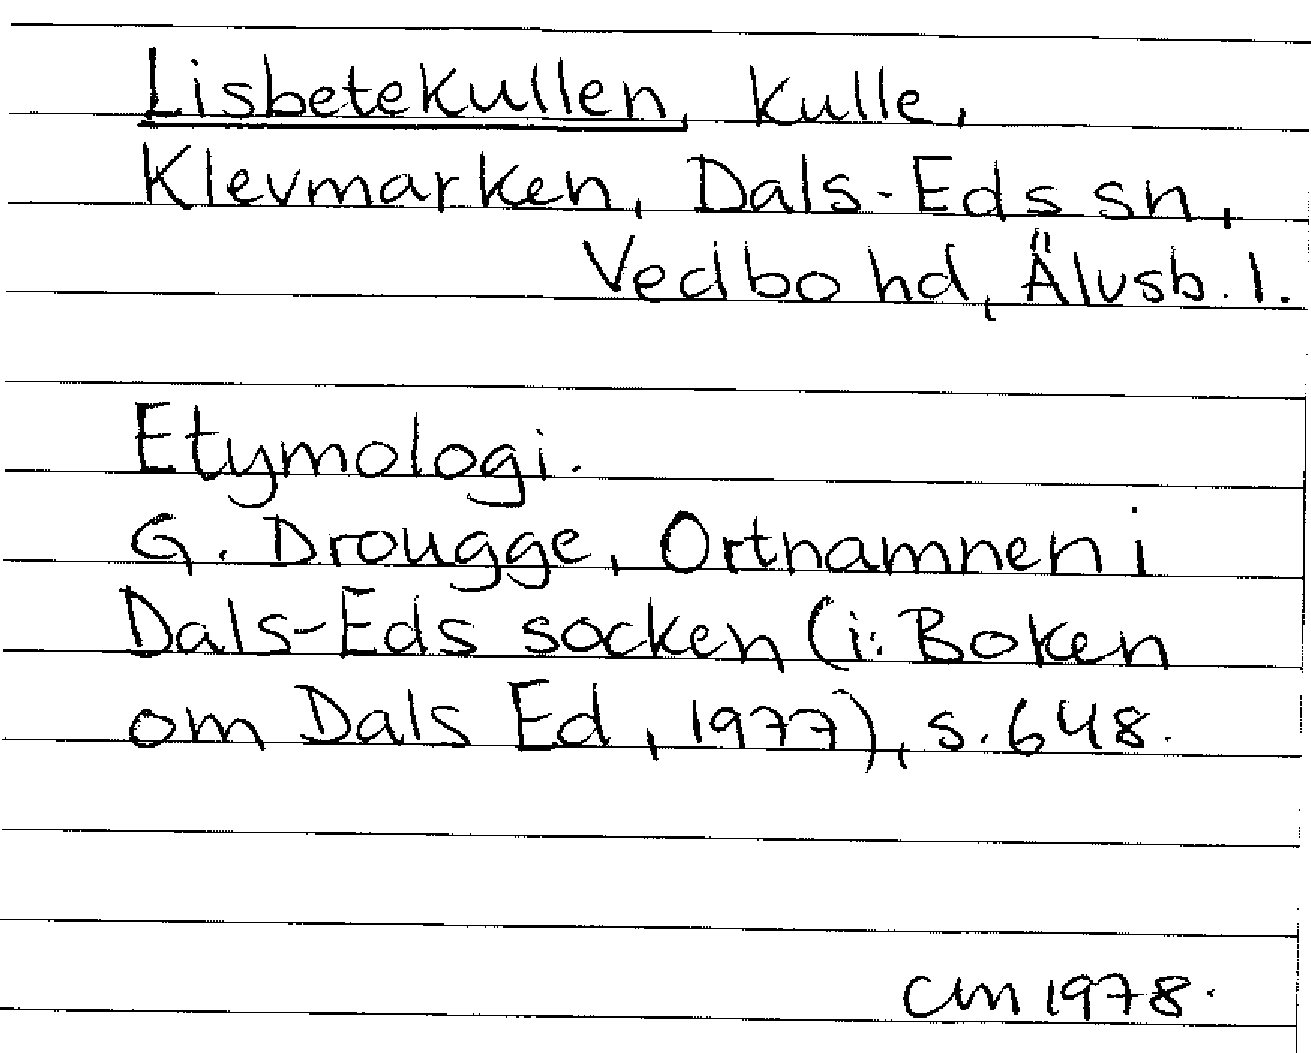 Lisbetekullen, kulle,
Klevmarken, Dals-Eds sn,
Vedbo hd, Älvsb. l.
Etymologi.
G. Drougge, Ortnamnen i
Dals-Eds socken (i: Boken
om Dals Ed, 1977), s. 648.
CM 1978.